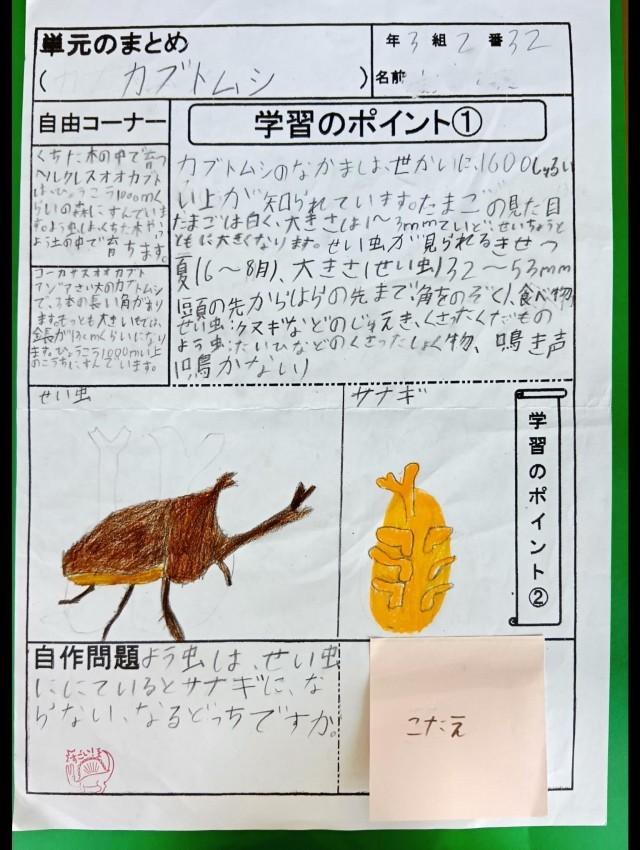 単元のまとめ
年 3 組 2 番 32
(カブトムシ)
名前
自由コーナー
くちた木の中で育つ
ヘルクレスオオカブト
は、ひょうこう1000mく
らいの森にすんでいま
す。よう虫は、くちた木や、
よう土の中で育ちます。
コーカサスオオカブト
アジアさい大のカブトムシ
で、3本の長い角があり
ます。もっとも大きいもでは、
全長が13cmくらいになり
ます。ひょうこう1000m以上
のこうちにすんでいます。
学習のポイント①
カブトムシのなかまは、世かいに、1600しゅるい
い上が知られています。たまごの見た目
たまごは白く、大きさは1〜3mmていど、せいちょうと
ともに大きくなります。せい虫が見られるきせつ
夏(6〜8月)、大きさ(せい虫)32〜53mm
(頭の先からはらの先まで、角をのぞく)、食べ物
せい虫:クヌギなどのじゅえき、くさったくだもの
よう虫:たいひなどのくさったしょく物、鳴き声
(鳴かない)
せい虫
サナギ
学習のポイント②
自作問題 よう虫は、せい虫
ににているとサナギに、な
らない、なるどっちですか。
こたえ